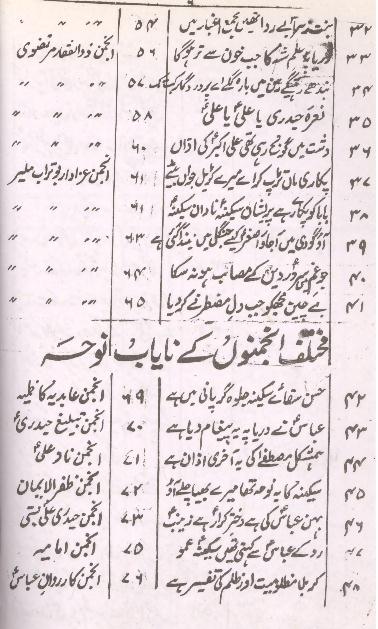 ۳۲ بنت زہرا بے ردا تھیں مجمع اغیار میں ۵۴ 〃 〃 〃
۳۳ دریا پہ علم شہ کا جب خون سے تر ہوگا ۵۶ انجمن ذوالفقار مرتضوی
۳۴ بندھے ۵۷ 〃 〃 〃
۳۵ نعرہ حیدری یا علیؑ یا علیؑ ۵۸ 〃 〃 〃
۳۶ دشت میں گونج رہی تھی علی اکبرؑ کی اذاں ۶۰ 〃 〃 〃
۳۷ پکاری ماں تڑپ کر ہائے میرے کڑیل جواں بیٹے ۶۱ انجمن عزادار بوتراب ملیر
۳۸ بابا کو پکارے ہے پریشان سکینہؑ ناداں سکینہؑ ۶۱ 〃 〃 〃
۳۹ آؤ گودی میں آجاؤ اصغر کیسے جنگل میں نیند آگئی ہے ۶۳ 〃 〃 〃
۴۰ جو غم سرور دیں کے مصائب ہو نہ سکا ۶۴ 〃 〃 〃
۴۱ بے چین مجھ کو جب دل مضطر نے کردیا ۶۵ 〃 〃 〃
مختلف انجمنوں کے نایاب نوحہ
۴۲ حسن سقائے سکینہ جلوہ گر پانی میں ہے ۶۹ انجمن عابدیہ کاظمیہ
۴۳ عباسؑ نے دریا پہ یہ پیغام دیا ہے ۷۰ انجمن تبلیغ حیدریؑ
۴۴ ہمشکل مصطفیٰؐ کی یہ آخری اذان ہے ۷۱ انجمن ناد علیؑ
۴۵ سکینہؑ کا یہ نوحہ تھا میرے بھیا چلے آؤ ۷۲ انجمن ظفر الایمان
۴۶ بہن عباسؑ کی ہے دختر کرارؑ ہے زینبؑ ۷۳ انجمن حیدری علی بستی
۴۷ رو کے عباسؑ سے کہتی تھیں سکینہؑ عمو ۷۵ انجمن امامیہ
۴۸ کربلا مظلومیت اور ظلم کی تفسیر ہے ۷۶ انجمن کاروان عباسؑ